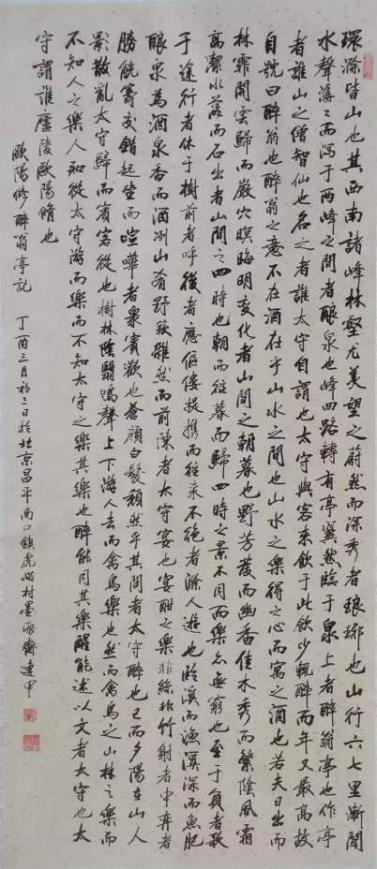 環滁皆山也其西南諸峰林壑尤美望之蔚然而深秀者琅琊也山行六七里漸聞
水聲潺潺而瀉于兩峰之間者釀泉也峰回路轉有亭翼然臨于泉上者醉翁亭也作亭
者誰山之僧智仙也名之者誰太守自謂也太守與客來飲于此飲少輒醉而年又最高故
自號曰醉翁也醉翁之意不在酒在乎山水之間也山水之樂得之心而寓之酒也若夫日出而
林霏開雲歸而巖穴暝晦明變化者山間之朝暮也野芳發而幽香佳木秀而繁陰風霜
高潔水落而石出者山間之四時也朝而往暮而歸四時之景不同而樂亦無窮也至于負者歌
于途行者休于樹前者呼後者應傴僂提攜而往來不絕者滁人遊也臨溪而漁溪深而魚肥
釀泉為酒泉香而酒冽山肴野蔌雜然而前陳者太守宴也宴酣之樂非絲非竹射者中弈者
勝觥籌交錯起坐而喧嘩者衆賓歡也蒼顏白髮頹然乎其間者太守醉也已而夕陽在山人
影散亂太守歸而賓客從也樹林陰翳鳴聲上下游人去而禽鳥樂也然而禽鳥知山林之樂而
不知人之樂人知從太守游而樂而不知太守之樂其樂也醉能同其樂醒能述以文者太守也太
守謂誰廬陵歐陽脩也
歐陽修醉翁亭記
丁酉三月初三日於北京昌平南口鎮虎峪村墨